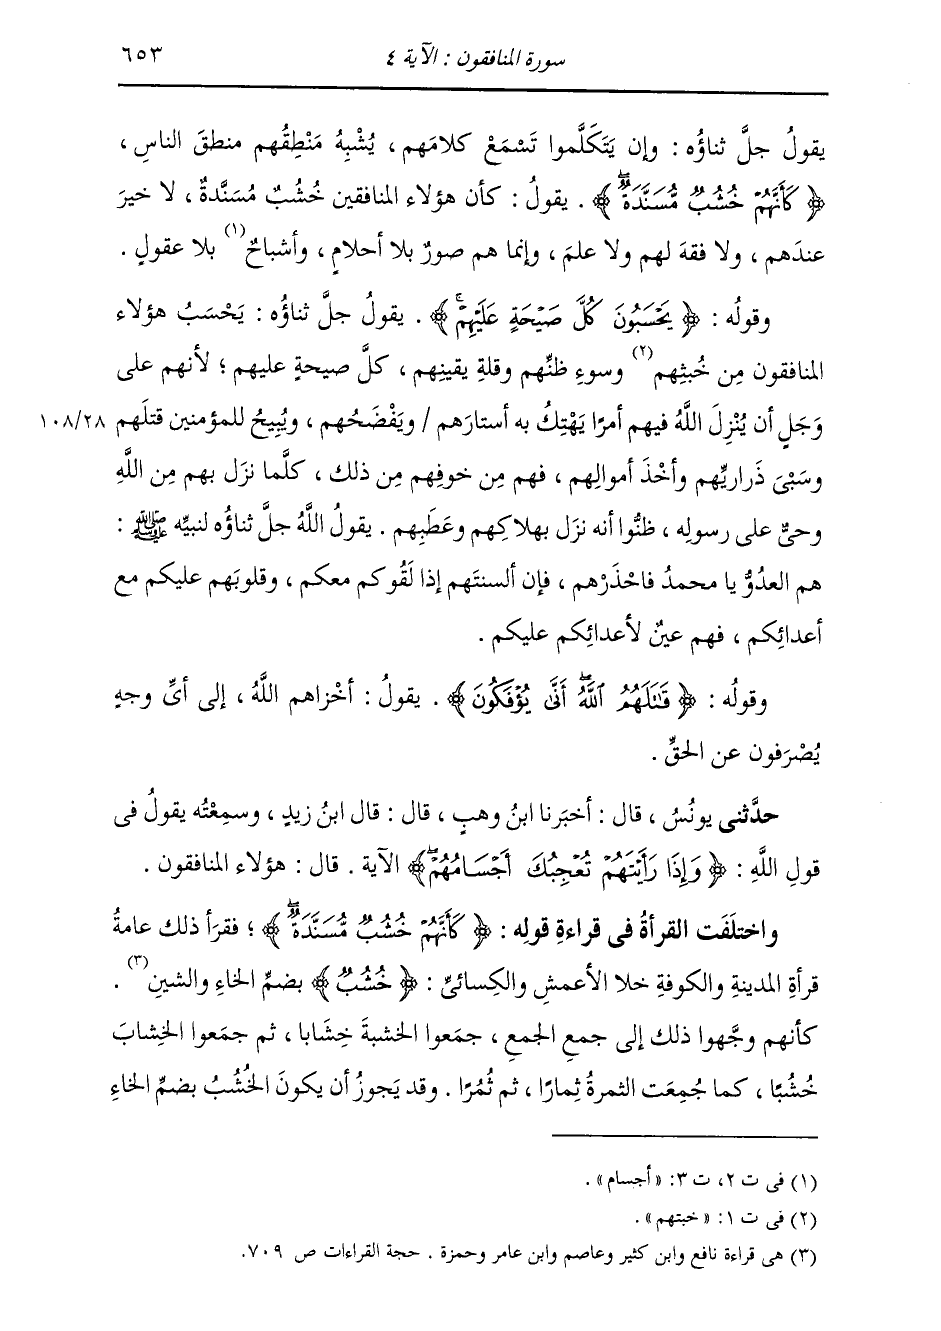 سورة المنافقون : الآية ٤ ٦٥٣
يقولُ جلَّ ثناؤُه : وإن يَتَكَلَّموا تَسْمَعْ كلامَهم ، يُشْبِهُ مَنْطِقُهم منطقَ الناسِ ،
﴿ كَأَنَّهُمْ خُشُبٌ مُّسَنَّدَةٌ ۖ ﴾ . يقولُ : كأن هؤلاء المنافقين خُشُبٌ مُسَنَّدةٌ ، لا خيرَ
عندَهم ، ولا فقهَ لهم ولا علمَ ، وإنما هم صورٌ بلا أحلامٍ ، وأشباحٌ(١) بلا عقولٍ .
وقولُه : ﴿ يَحْسَبُونَ كُلَّ صَيْحَةٍ عَلَيْهِمْ ۚ ﴾ . يقولُ جلَّ ثناؤُه : يَحْسَبُ هؤلاء
المنافقون مِن خُبثِهم(٢) وسوءِ ظنِّهم وقلةِ يقينِهم ، كلَّ صيحةٍ عليهم ؛ لأنهم على
وَجَلٍ أن يُنْزِلَ اللَّهُ فيهم أمرًا يَهْتِكُ به أستارَهم / ويَفْضَحُهم ، ويُبِيحُ للمؤمنين قتلَهم ١٠٨/٢٨
وسَبْىَ ذَراريِّهم وأخْذَ أموالِهم ، فهم مِن خوفِهم مِن ذلك ، كلَّما نزَل بهم مِن اللَّهِ
وحىٌ على رسولِه ، ظنُّوا أنه نزَل بهلاكِهم وعَطَبِهم . يقولُ اللَّهُ جلَّ ثناؤُه لنبيِّه ﷺ :
هم العدُوُّ يا محمدُ فاحْذَرْهم ، فإن ألسنتَهم إذا لَقُوكم معكم ، وقلوبَهم عليكم مع
أعدائِكم ، فهم عينٌ لأعدائِكم عليكم .
وقولُه : ﴿ قَاتَلَهُمُ ٱللَّهُ ۖ أَنَّىٰ يُؤْفَكُونَ ﴾ . يقولُ : أخْزاهم اللَّهُ ، إلى أىِّ وجهٍ
يُصْرَفون عن الحقِّ .
حدَّثنى يونُسُ ، قال : أخبَرنا ابنُ وهبٍ ، قال : قال ابنُ زيدٍ ، وسمِعْتُه يقولُ فى
قولِ اللَّهِ : ﴿ وَإِذَا رَأَيْتَهُمْ تُعْجِبُكَ أَجْسَامُهُمْ ۖ ﴾ الآية . قال : هؤلاء المنافقون .
واختلَفَت القرأةُ فى قراءةِ قولِه : ﴿ كَأَنَّهُمْ خُشُبٌ مُّسَنَّدَةٌ ۖ ﴾ ؛ فقرَأ ذلك عامةُ
قرأةِ المدينةِ والكوفةِ خلا الأعمشِ والكِسائىِّ : ﴿ خُشُبٌ ﴾ بضمِّ الخاءِ والشينِ(٣) .
كأنهم وجَّهوا ذلك إلى جمعِ الجمعِ ، جمَعوا الخشبةَ خِشَابا ، ثم جمَعوا الخِشابَ
خُشُبًا ، كما جُمِعَت الثمرةُ ثِمارًا ، ثم ثُمُرًا . وقد يَجوزُ أن يكونَ الخُشُبُ بضمِّ الخاءِ
(١) فى ت ٢، ت ٣: «أجسام» .
(٢) فى ت ١: «خبتهم» .
(٣) هى قراءة نافع وابن كثير وعاصم وابن عامر وحمزة . حجة القراءات ص ٧٠٩.